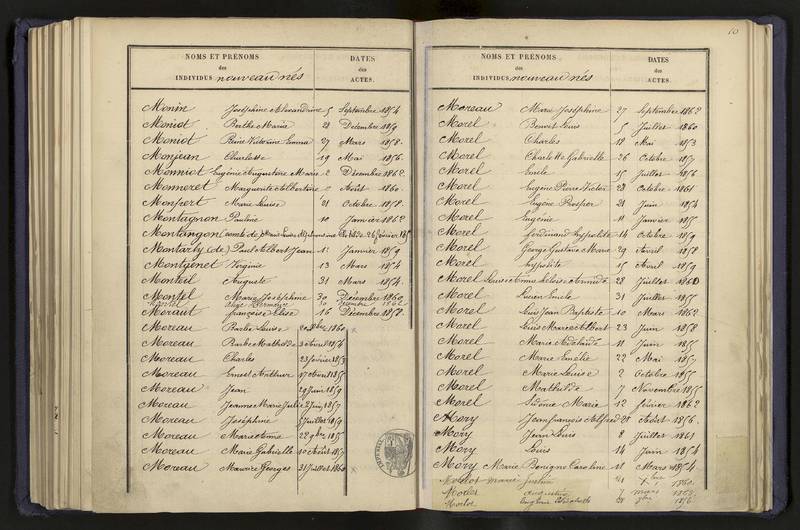 NOMS ET PRÉNOMS
des
INDIVIDUS nouveau nés
DATES
des
ACTES.
Monin Joséphine Alexandrine 5 Septembre 1854
Moniot Berthe Maria 28 Décembre 1859
Moniot Reine Victorine Emma 27 Mars 1858
Monjean Charlotte 19 Mai 1856
Monniot Eugénie Augustine Marie 2 Décembre 1862
Monnoret Marguerite Albertine Août 1860
Monfort Marie Louise 21 Octobre 1858
Montagnon Pauline 10 Janvier 1862
Montangon (comte de) 26 février
Montarby (de) Paul Albert Jean 1 Janvier 1859
Montgenet Virginie 13 Mars 1854
Monteil Auguste 31 Mars 1854
Montel Marie Joséphine 30 Décembre 1860
Montel
Moraut françoise Elise 16 Décembre 1858
Moreau Barbe Louise 1860
Moreau Barbe Mathilde 3 avril 1856
Moreau Charles 23 février
Moreau Ernest Arthur 17 Août 1855
Moreau Jean 29 Juin 1859
Moreau Jeanne Marie Julie 2 Juin 1857
Moreau Joséphine 5 Juillet 1859
Moreau Marie Anne 22 9bre 1855
Moreau Marie Gabrielle 10 Août 1857
Moreau Maurice Georges 31 Juillet 1860
10
NOMS ET PRÉNOMS
des
INDIVIDUS, nouveau nés
DATES
des
ACTES.
Moreau Marie Joséphine 27 Septembre 1862
Morel Benoit Louis 5 Juillet 1860
Morel Charles 18 Mai 1853
Morel Charlotte Gabrielle 26 Octobre 1857
Morel Emile 15 Juillet 1856
Morel Eugène Pierre Victor 28 Octobre 1861
Morel Eugène Prosper 21 Juin 1854
Morel Eugénie 11 Janvier 1855
Morel Ferdinand hyppolite 14 Octobre 1859
Morel George Gustave Marie 29 Avril 1858
Morel hyppolite 5 Avril 1859
Morel Louis 28 Juillet
Morel Lucien Emile 31 Juillet 1855
Morel Louis Jean Baptiste 10 Mars 1862
Morel Louis Marie Albert 23 Juin 1858
Morel Marie Adelaïde 11 Juin 1855
Morel Marie Emélie 22 Mai 1857
Morel Marie Louise 2 Octobre 1855
Morel Mathilde 7 Novembre 1855
Morel Sidonie Marie 12 février 1862
Mory Jean françois Alfred 28 Août 1856
Mory Jean Louis 8 Juillet 1861
Mory Louis 14 Juin 1854
Mory Marie Benigne Caroline 11 Mars 1854
Marie Justine 1860
Augustin 7 mars
Eugénie 1856